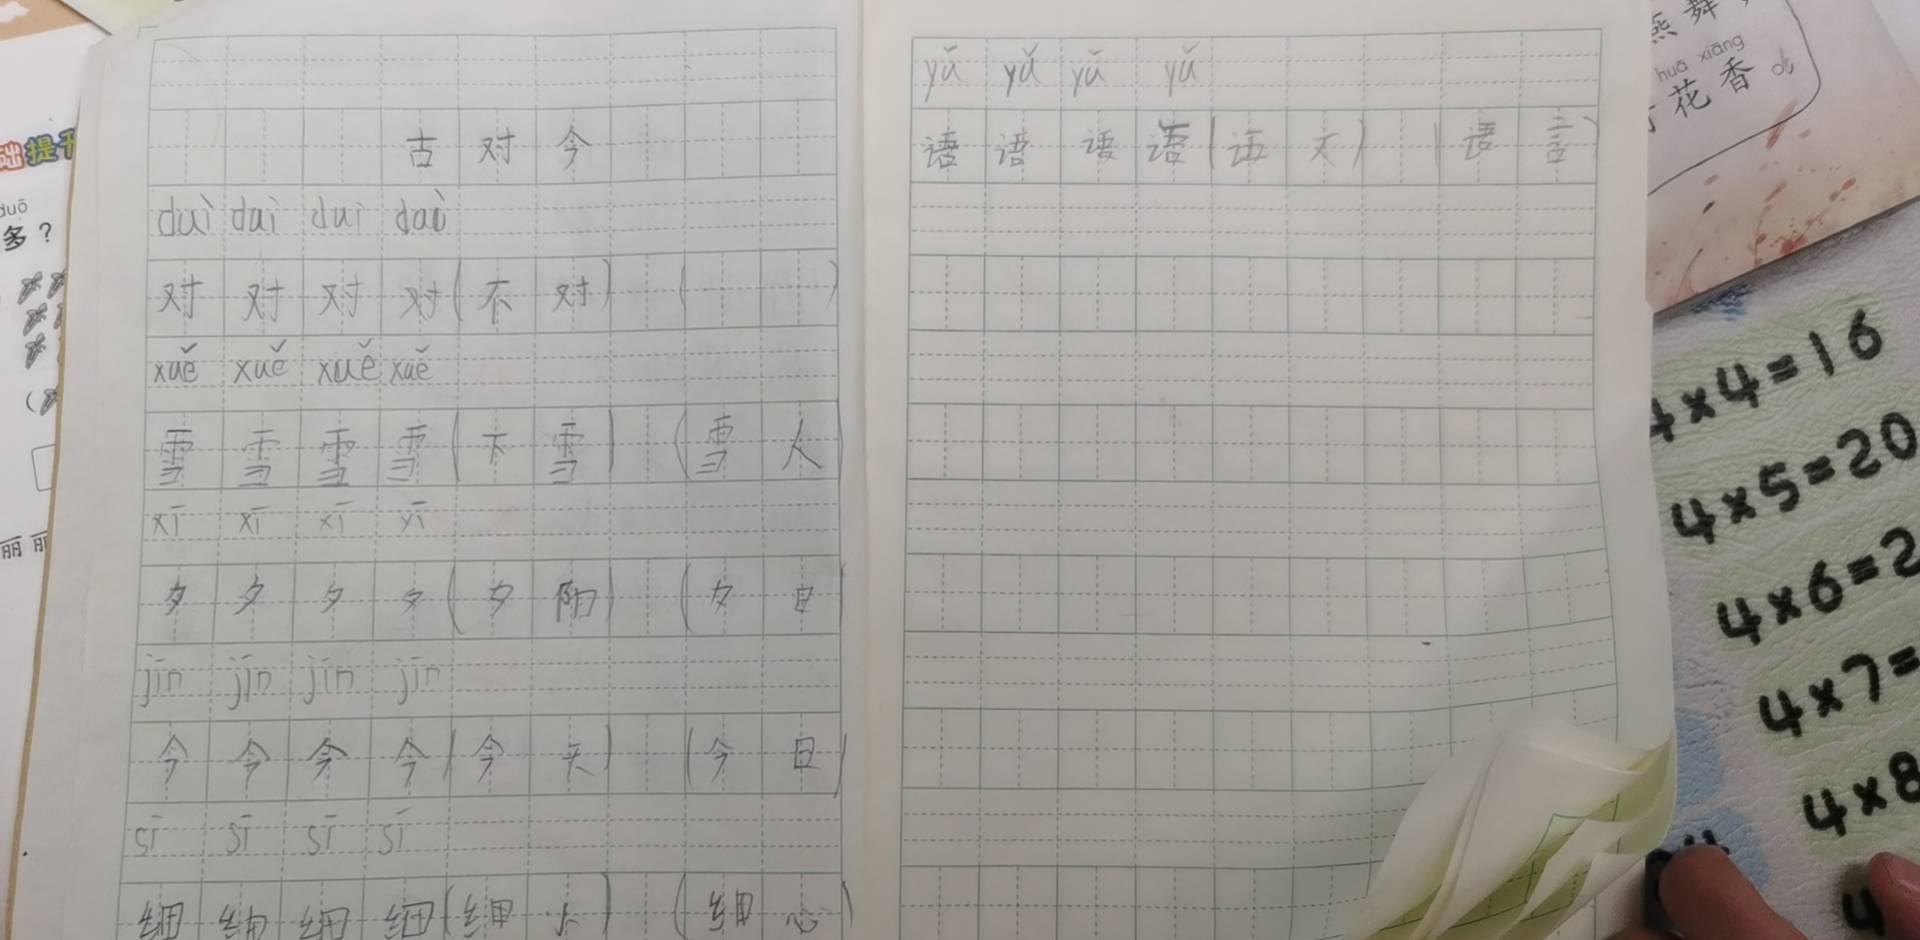 古对今
duì duì duì duì
对 对 对 对 (不 对) ( )
xuě xuě xuě xuě
雪 雪 雪 雪 (下 雪) (雪 人)
xī xī xī xī
夕 夕 夕 夕 (夕 阳) (夕 日)
jīn jīn jīn jīn
今 今 今 今 (今 天) (今 日)
sī sī sī sī
细 细 细 细 (细 小) (细 心)
yǔ yǔ yǔ yǔ
语 语 语 语 (语 文) (语 言)
础提升
duō
多?
丽 丽
燕舞
huā xiāng
花香
4×4=16
4×5=20
4×6=2
4×7=
4×8
4